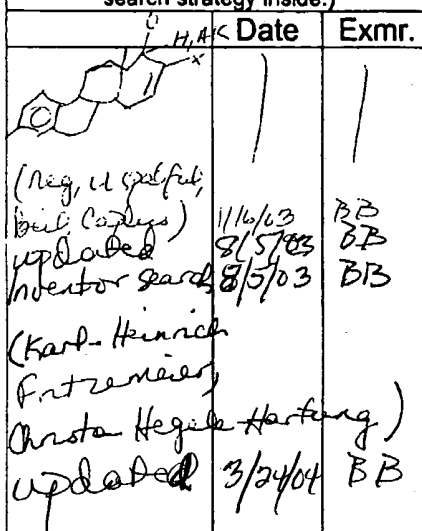 search strategy inside.)
Date Exmr.
O
H, AK
X
(reg, uspatful,
beil, caplus) 1/16/03 BB
updated 8/5/03 BB
Inventor search 8/5/03 BB
(Karl-Heinrich
Fritzemeier,
Christa Hegele-Hartung)
updated 3/24/04 BB